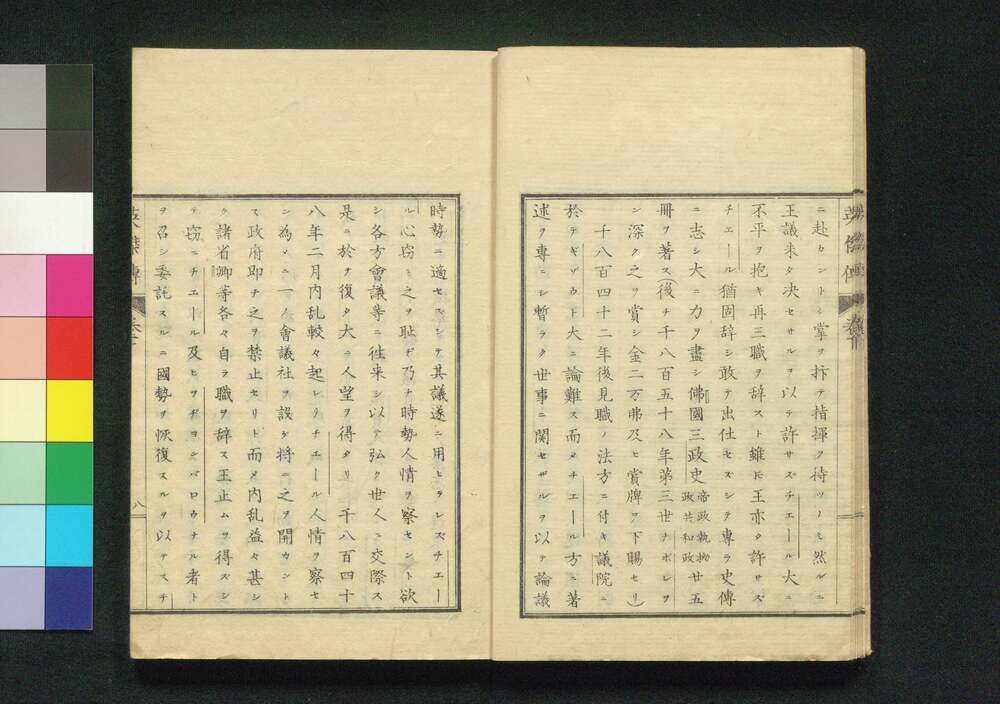 ニ赴カントシ掌ヲ抃テ指揮ヲ待ツノミ然ルニ
王議未タ决セサルヲ以テ許サズチエール大ニ
不平ヲ抱キ再三職ヲ辞スト雖𪜈王亦タ許サズ
チエール猶固辞シ敢テ出仕セズシテ専ラ史傳
ニ志シ大ニ力ヲ盡シ佛國三政史帝政執抝政共和政廿五
冊ヲ著ス(後チ千八百五十八年第三世ナポレヲ
ン深ク之ヲ賞シ金二万弗及ヒ賞牌ヲ下賜セリ)
千八百四十二年後見職ノ法方ニ付キ議院ニ
於テギゾウト大ニ論難ス而メチエール方ニ著
述ヲ専ニシ暫ラク世事ニ関セザルヲ以テ論議
時勢ニ適セズシテ其議遂ニ用ヒラレズチエー
ル心窃ニ之ヲ恥ヂ乃チ時勢人情ヲ察セント欲
シ各方會議等ニ徃来シ以テ弘ク世人ニ交際ス
是ニ於ヲ復タ大ニ人望ヲ得タリ千八百四十
八年二月内乱較々起レリチエール人情ヲ察セ
ン為メニ一ノ會議社ヲ設ケ将ニ之ヲ開カント
ス政府即チ之ヲ禁止セリト而メ内乱益々甚シ
ク諸省卿等各々自ラ職ヲ辞ス王止ムヲ得ズシ
テ窃ニチエール及ヒヲヂヨンバロウナル者ト
ヲ召シ委託スルニ國勢ヲ恢復スルヲ以テスチ
八